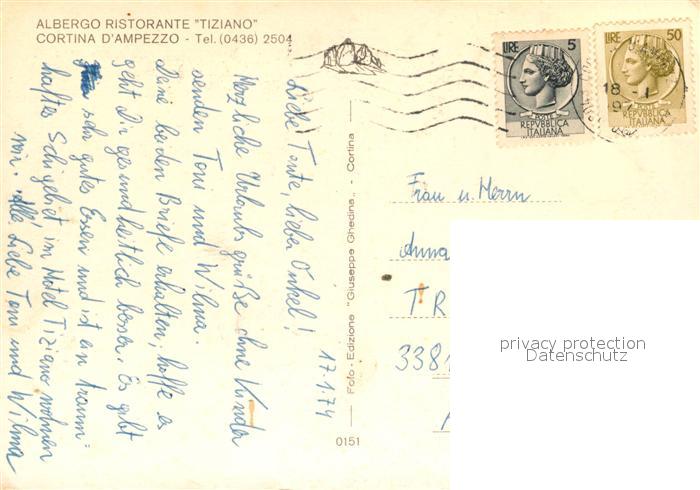 ALBERGO RISTORANTE "TIZIANO"
CORTINA D'AMPEZZO - Tel. (0436) 2504
17.1.74
Liebe Tante, lieber Onkel!
Herzliche Urlaubsgrüße ohne Kinder
senden Toni und Wilma.
Deine beiden Briefe erhalten, hoffe es
geht Dir gesundheitlich besser. Es gibt
sehr gutes Essen und ist ein traum=
haftes Schigebiet im Hotel Tiziano wohnen
wir. Alles Liebe Toni und Wilma
Foto - Edizione "Giuseppe Ghedina" - Cortina
0151
LIRE 5
POSTE
REPVBBLICA
ITALIANA
LIRE 50
POSTE
REPVBBLICA
ITALIANA
18 - 1
Frau u. Herrn
Anna
TR
3381
privacy protection
Datenschutz